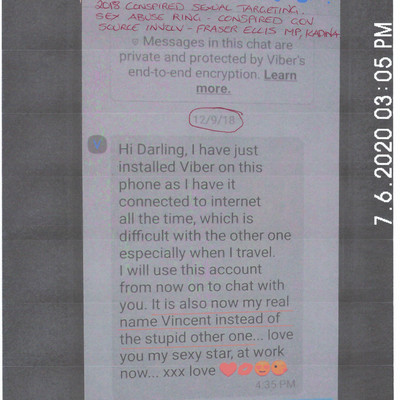 2018 CONSPIRED SEXUAL TARGETING.
SEX ABUSE RING - CONSPIRED GOV
SOURCE INVOLV - FRASER ELLIS MP, KADINA
Messages in this chat are
private and protected by Viber's
end-to-end encryption. Learn
more.
12/9/18
Hi Darling, I have just
installed Viber on this
phone as I have it
connected to internet
all the time, which is
difficult with the other one
especially when I travel.
I will use this account
from now on to chat with
you. It is also now my real
name Vincent instead of
the stupid other one... love
you my sexy star, at work
now... xxx love ❤️💋😍😘
4:35 PM
7.6.2020 03:05 PM